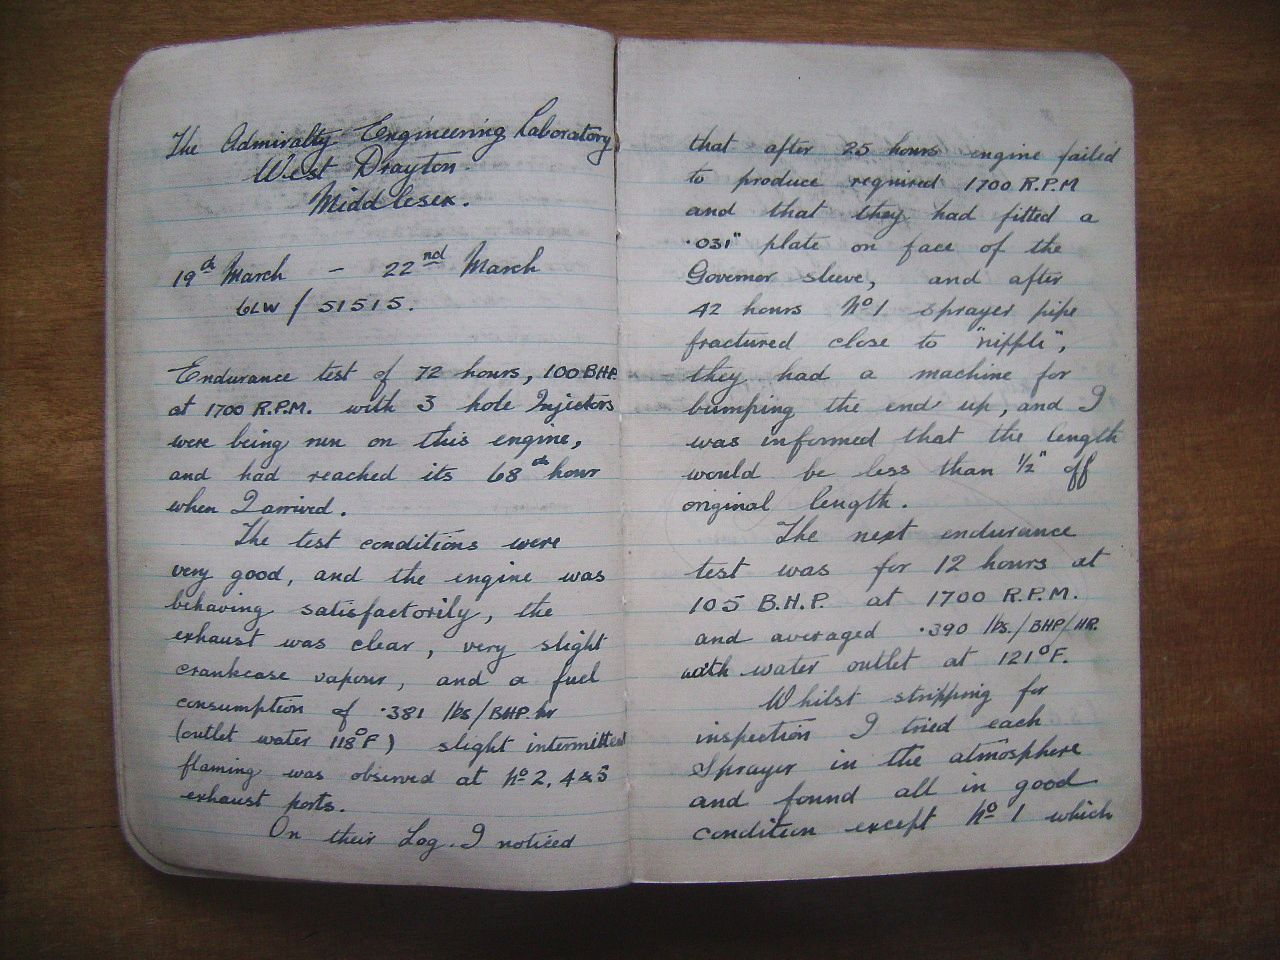 The Admiralty Engineering Laboratory
West Drayton.
Middlesex.
19th March - 22nd March
6LW / 51515.
Endurance test of 72 hours, 100 BHP
at 1700 R.P.M. with 3 hole Injectors
were being run on this engine,
and had reached its 68th hour
when I arrived.
The test conditions were
very good, and the engine was
behaving satisfactorily, the
exhaust was clear, very slight
crankcase vapour, and a fuel
consumption of .381 lbs/BHP.hr
(outlet water 118°F) slight intermittent
flaming was observed at No 2, 4 & 3
exhaust ports.
On their Log. I noticed
that after 25 hours engine failed
to produce required 1700 R.P.M
and that they had fitted a
.031" plate on face of the
Governor sleeve, and after
42 hours No 1 sprayer pipe
fractured close to "nipple",
they had a machine for
bumping the end up, and I
was informed that the length
would be less than ½" off
original length.
The next endurance
test was for 12 hours at
105 B.H.P. at 1700 R.P.M.
and averaged .390 lbs./BHP/HR.
with water outlet at 121°F.
Whilst stripping for
inspection I tried each
Sprayer in the atmosphere
and found all in good
condition except No 1 which